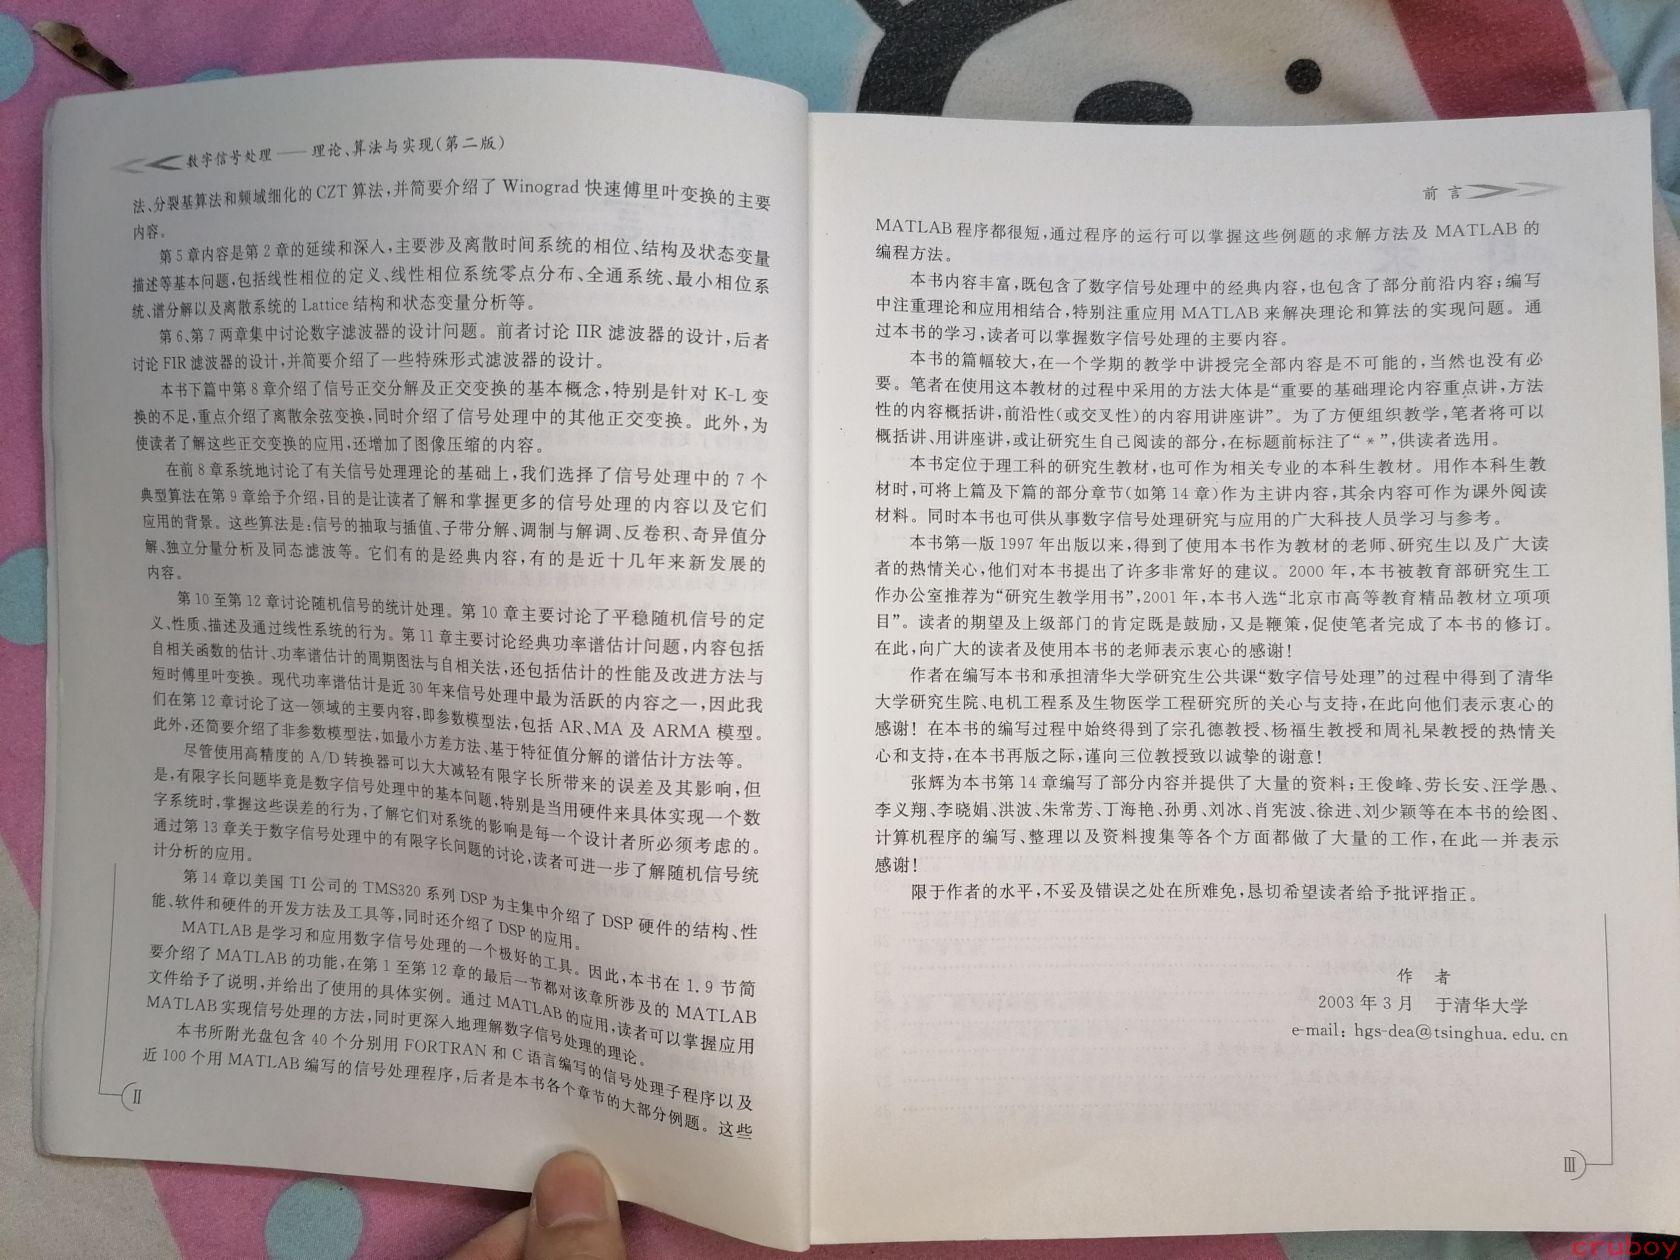 数字信号处理——理论、算法与实现(第二版)
法、分裂基算法和频域细化的CZT算法,并简要介绍了Winograd快速傅里叶变换的主要
内容。
第5章内容是第2章的延续和深入,主要涉及离散时间系统的相位、结构及状态变量
描述等基本问题,包括线性相位的定义、线性相位系统零点分布、全通系统、最小相位系
统、谱分解以及离散系统的Lattice结构和状态变量分析等。
第6、第7两章集中讨论数字滤波器的设计问题。前者讨论IIR滤波器的设计,后者
讨论FIR滤波器的设计,并简要介绍了一些特殊形式滤波器的设计。
本书下篇中第8章介绍了信号正交分解及正交变换的基本概念,特别是针对K-L变
换的不足,重点介绍了离散余弦变换,同时介绍了信号处理中的其他正交变换。此外,为
使读者了解这些正交变换的应用,还增加了图像压缩的内容。
在前8章系统地讨论了有关信号处理理论的基础上,我们选择了信号处理中的7个
典型算法在第9章给予介绍,目的是让读者了解和掌握更多的信号处理的内容以及它们
应用的背景。这些算法是:信号的抽取与插值、子带分解、调制与解调、反卷积、奇异值分
解、独立分量分析及同态滤波等。它们有的是经典内容,有的是近十几年来新发展的
内容。
第10至第12章讨论随机信号的统计处理。第10章主要讨论了平稳随机信号的定
义、性质、描述及通过线性系统的行为。第11章主要讨论经典功率谱估计问题,内容包括
自相关函数的估计、功率谱估计的周期图法与自相关法,还包括估计的性能及改进方法与
短时傅里叶变换。现代功率谱估计是近30年来信号处理中最为活跃的内容之一,因此我
们在第12章讨论了这一领域的主要内容,即参数模型法,包括AR、MA及ARMA模型。
此外,还简要介绍了非参数模型法,如最小方差方法、基于特征值分解的谱估计方法等。
尽管使用高精度的A/D转换器可以大大减轻有限字长所带来的误差及其影响,但
是,有限字长问题毕竟是数字信号处理中的基本问题,特别是当用硬件来具体实现一个数
字系统时,掌握这些误差的行为,了解它们对系统的影响是每一个设计者所必须考虑的。
通过第13章关于数字信号处理中的有限字长问题的讨论,读者可进一步了解随机信号统
计分析的应用。
第14章以美国TI公司的TMS320系列DSP为主集中介绍了DSP硬件的结构、性
能、软件和硬件的开发方法及工具等,同时还介绍了DSP的应用。
MATLAB是学习和应用数字信号处理的一个极好的工具。因此,本书在1.9节简
要介绍了MATLAB的功能,在第1至第12章的最后一节都对该章所涉及的MATLAB
文件给予了说明,并给出了使用的具体实例。通过MATLAB的应用,读者可以掌握应用
MATLAB实现信号处理的方法,同时更深入地理解数字信号处理的理论。
本书所附光盘包含40个分别用FORTRAN和C语言编写的信号处理子程序以及
近100个用MATLAB编写的信号处理程序,后者是本书各个章节的大部分例题。这些
Ⅱ
前言
MATLAB程序都很短,通过程序的运行可以掌握这些例题的求解方法及MATLAB的
编程方法。
本书内容丰富,既包含了数字信号处理中的经典内容,也包含了部分前沿内容;编写
中注重理论和应用相结合,特别注重应用MATLAB来解决理论和算法的实现问题。通
过本书的学习,读者可以掌握数字信号处理的主要内容。
本书的篇幅较大,在一个学期的教学中讲授完全部内容是不可能的,当然也没有必
要。笔者在使用这本教材的过程中采用的方法大体是“重要的基础理论内容重点讲,方法
性的内容概括讲,前沿性(或交叉性)的内容用讲座讲”。为了方便组织教学,笔者将可以
概括讲、用讲座讲,或让研究生自己阅读的部分,在标题前标注了“*”,供读者选用。
本书定位于理工科的研究生教材,也可作为相关专业的本科生教材。用作本科生教
材时,可将上篇及下篇的部分章节(如第14章)作为主讲内容,其余内容可作为课外阅读
材料。同时本书也可供从事数字信号处理研究与应用的广大科技人员学习与参考。
本书第一版1997年出版以来,得到了使用本书作为教材的老师、研究生以及广大读
者的热情关心,他们对本书提出了许多非常好的建议。2000年,本书被教育部研究生工
作办公室推荐为“研究生教学用书”,2001年,本书入选“北京市高等教育精品教材立项项
目”。读者的期望及上级部门的肯定既是鼓励,又是鞭策,促使笔者完成了本书的修订。
在此,向广大的读者及使用本书的老师表示衷心的感谢!
作者在编写本书和承担清华大学研究生公共课“数字信号处理”的过程中得到了清华
大学研究生院、电机工程系及生物医学工程研究所的关心与支持,在此向他们表示衷心的
感谢!在本书的编写过程中始终得到了宗孔德教授、杨福生教授和周礼杲教授的热情关
心和支持,在本书再版之际,谨向三位教授致以诚挚的谢意!
张辉为本书第14章编写了部分内容并提供了大量的资料;王俊峰、劳长安、汪学愚、
李义翔、李晓娟、洪波、朱常芳、丁海艳、孙勇、刘冰、肖宪波、徐进、刘少颖等在本书的绘图、
计算机程序的编写、整理以及资料搜集等各个方面都做了大量的工作,在此一并表示
感谢!
限于作者的水平,不妥及错误之处在所难免,恳切希望读者给予批评指正。
作 者
2003年3月 于清华大学
e-mail: hgs-dea@tsinghua.edu.cn
Ⅲ
cruboy